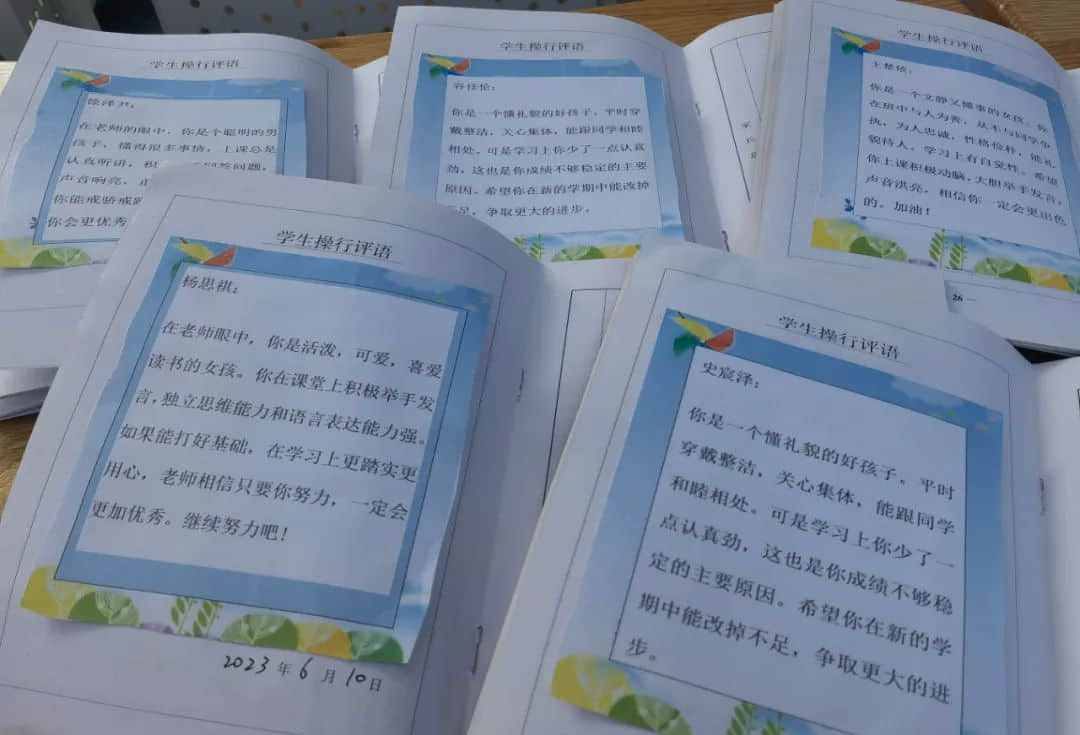 学生操行评语
徐泽尹：
在老师的眼中，你是个聪明的男
孩子，懂得很多事情，上课总是
认真听讲，积
回答问题，
声音响亮，
你能戒骄戒
你会更优秀
学生操行评语
容佳伦：
你是一个懂礼貌的好孩子，平时穿
戴整洁，关心集体，能跟同学和睦
相处。可是学习上你少了一点认真
劲，这也是你成绩不够稳定的主要
原因。希望你在新的学期中能改掉
不足，争取更大的进步。
学生操行评语
王梦依：
你是一个文静又懂事的女孩。你
在班中与人为善，从不与同学争
执，为人忠诚，性格俭朴，能礼
貌待人。学习上有自觉性。希望
你上课积极动脑，大胆举手发言，
声音洪亮，相信你一定会更出色
的。加油！
26
学生操行评语
杨思祺：
在老师眼中，你是活泼，可爱，喜爱
读书的女孩。你在课堂上积极举手发
言，独立思维能力和语言表达能力强。
如果能打好基础，在学习上更踏实更
用心，老师相信只要你努力，一定会
更加优秀。继续努力吧！
2023年6月10日
学生操行评语
史宸泽：
你是一个懂礼貌的好孩子。平时
穿戴整洁，关心集体，能跟同学
和睦相处。可是学习上你少了一
点认真劲，这也是你成绩不够稳
定的主要原因。希望你在新的学
期中能改掉不足，争取更大的进
步。